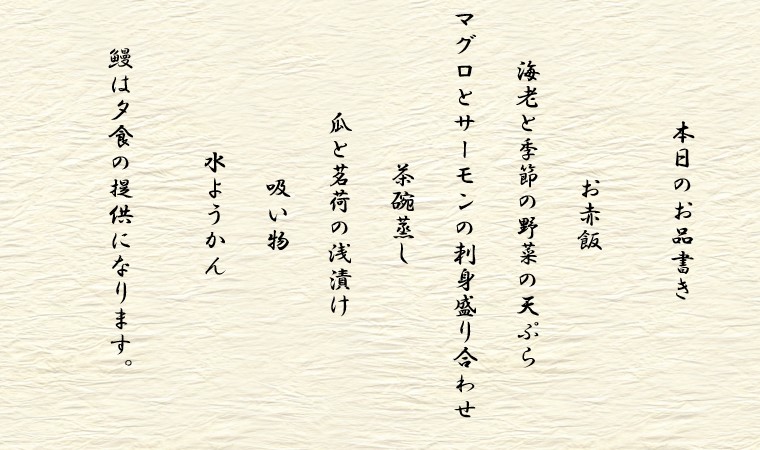 本日のお品書き
お赤飯
海老と季節の野菜の天ぷら
マグロとサーモンの刺身盛り合わせ
茶碗蒸し
瓜と茗荷の浅漬け
吸い物
水ようかん
鰻は夕食の提供になります。